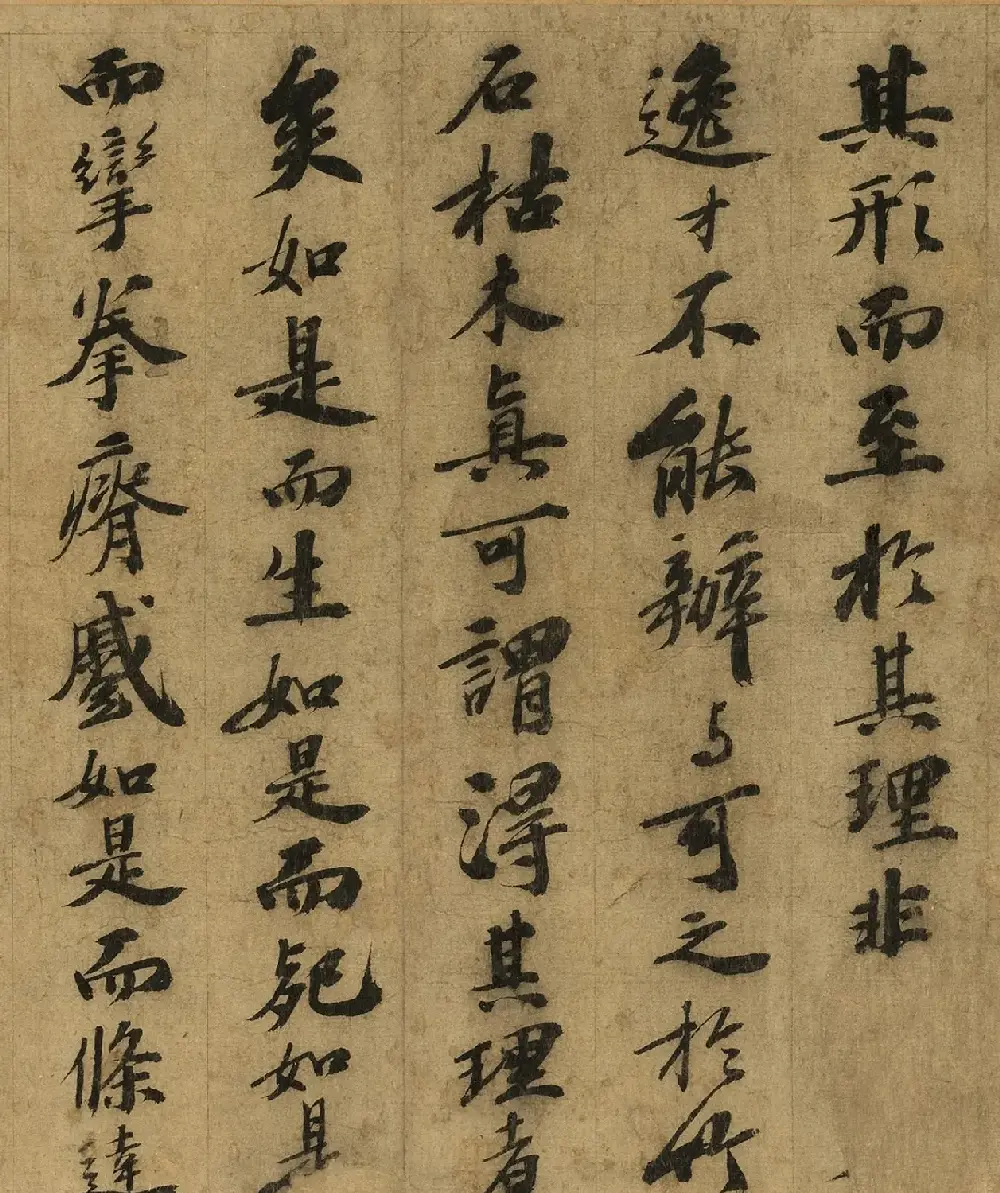 其形而至於其理非
逸才不能辦与可之於竹
石枯木真可謂得其理者
矣如是而生如是而死如是
而攣拳瘠蹙如是而條達